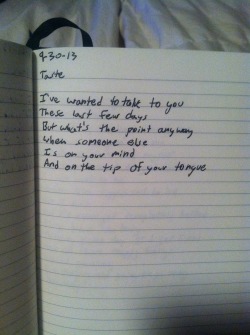 9-30-13
Taste
I've wanted to take to you
These last few days
But what's the point anyway
When someone else
Is on your mind
And on the tip of your tongue